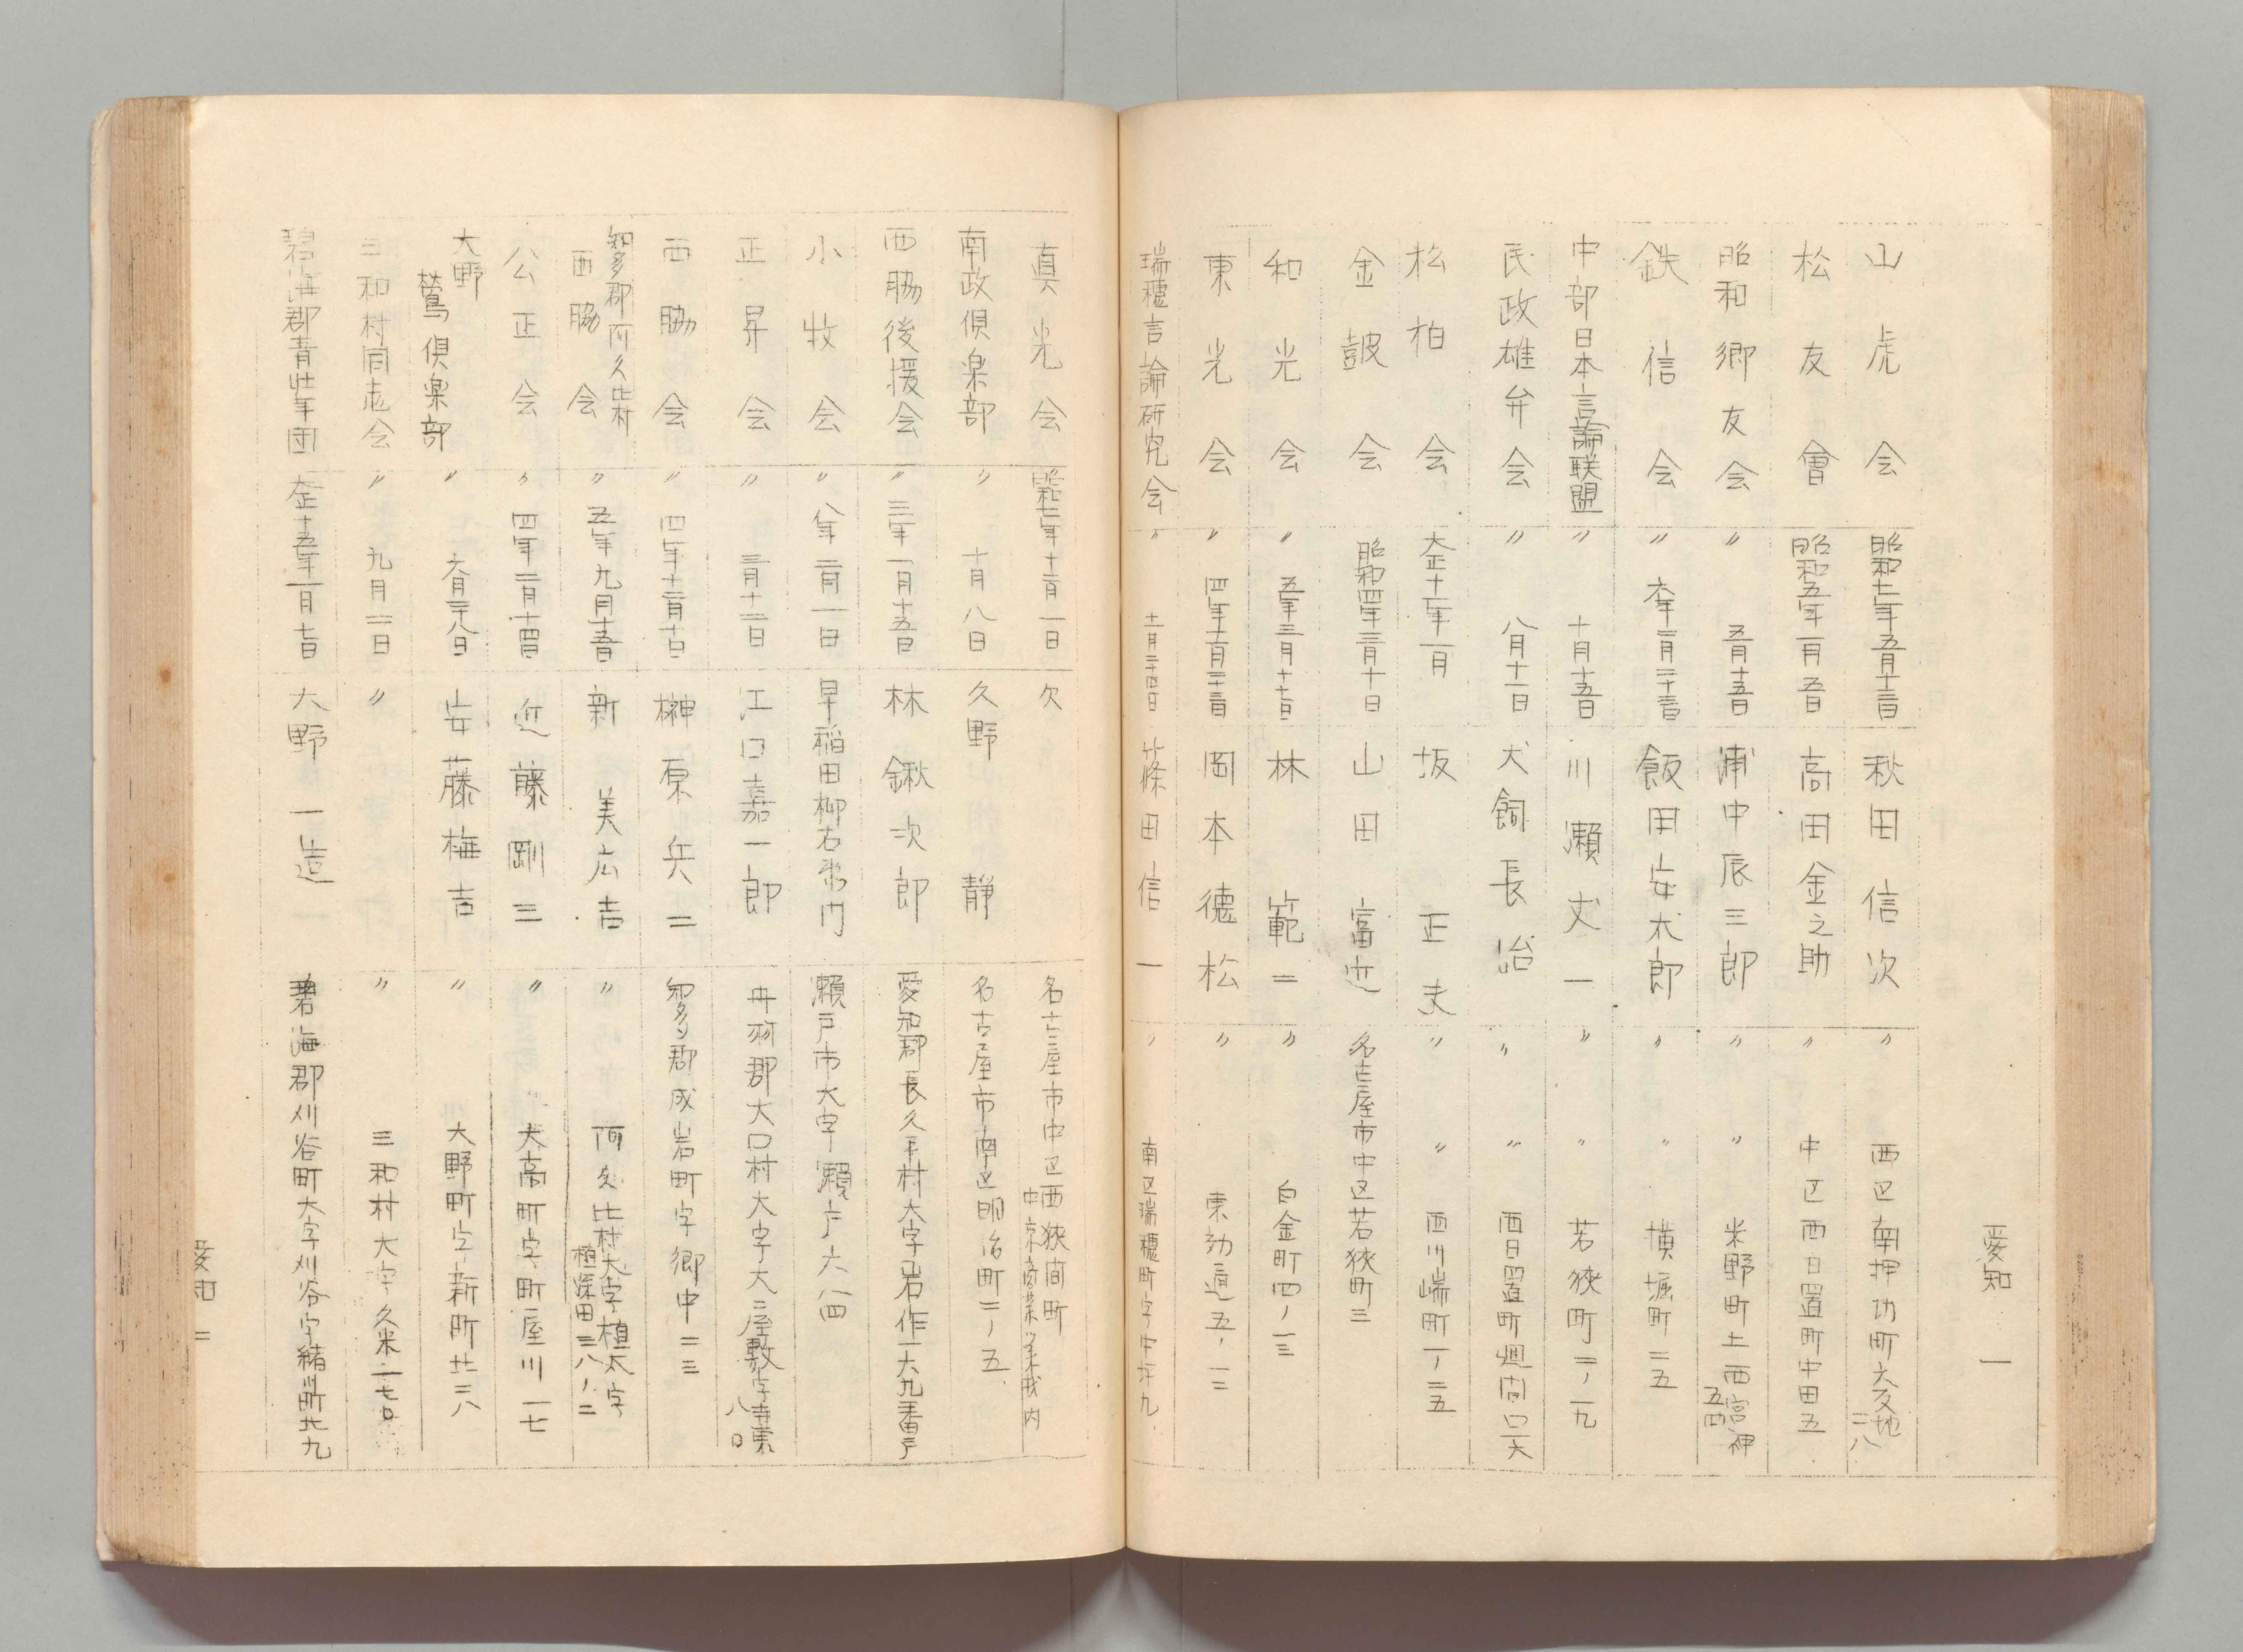 愛知 一
山虎会 昭和七年五月十三日 秋田信次 〃 西区南押切町大字地三八
松友會 昭和五年一月五日 高田金之助 〃 中区西日置町中田五
昭和郷友会 〃 五月十五日 浦中辰三郎 〃 〃 米野町土西宮神五四
鉄信会 〃 六年二月二十三日 飯田安太郎 〃 〃 横堀町二五
中部日本言論联盟 〃 十月十五日 川瀬丈一 〃 〃 若狭町二ノ九
民政雄弁会 〃 八月十一日 犬飼長治 〃 〃 西日置町
松柏会 大正十一年一月 坂正夫 〃 〃 西川端町一ノ二五
金鼓会 昭和四年三月十日 山田富近 名古屋市中区若狭町三
和光会 〃 五年三月十七日 林範二 〃 白金町四ノ一三
東光会 〃 四年十一月二十三日 岡本徳松 〃 東効通五ノ一二
瑞穂言論研究会 〃 十一月二十四日 條田信一 〃 南区瑞穂町字中坪九
真光会 昭和七年十二月一日 欠 名古屋市中区西狭間町中京商業学校内
南政倶楽部 〃 十月八日 久野静 名古屋市南区明治町二ノ五
西脇後援会 〃 三年一月十五日 林鍬次郎 愛知郡長久手村大字岩作一六九番戸
小牧会 〃 八年二月一日 早稲田柳右衛門 瀬戸市大字瀬戸六八四
正昇会 〃 三月十二日 江口嘉一郎 丹羽郡大口村大字大屋敷字寺東八〇
西脇会 〃 四年十二月十七日 榊原兵二 知多郡成岩町字郷中二三
知多郡阿久比村西脇会 〃 五年九月十五日 新美広吉 〃 阿久比村大字植大字植深田三八ノ二
公正会 〃 四年二月十四日 近藤剛三 〃 大高町字町屋川一七
大野鶯倶楽部 〃 六月二十八日 安藤梅吉 〃 大野町字新町廿三八
三和村同志会 〃 九月二日 〃 〃 三和村大字久米一七〇
碧海郡青壮年団 大正十五年一月七日 大野一造 碧海郡刈谷町大字刈谷字緒川町廿九
愛知 二